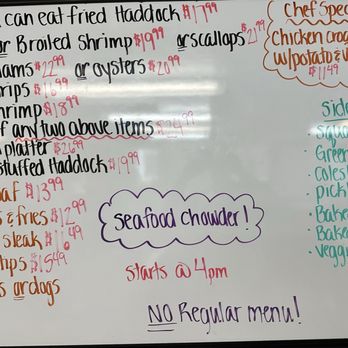 can eat fried Haddock $17.99
or Broiled Shrimp $19.99 or scallops $21.99
ams $22.99 or oysters $20.99
rips $16.99
hrimp $18.99
f any two above items
platter $26.99
stuffed Haddock $19.99
oaf $13.99
s & fries $12.99
steak $
hps $15.49
s or dogs
Chef Spec
Chicken croq
w/potato & v
$11.49
side
squa
Green
Coles
pick
Bake
Bake
veggi
seafood chowder!
starts @ 4pm
NO Regular menu!